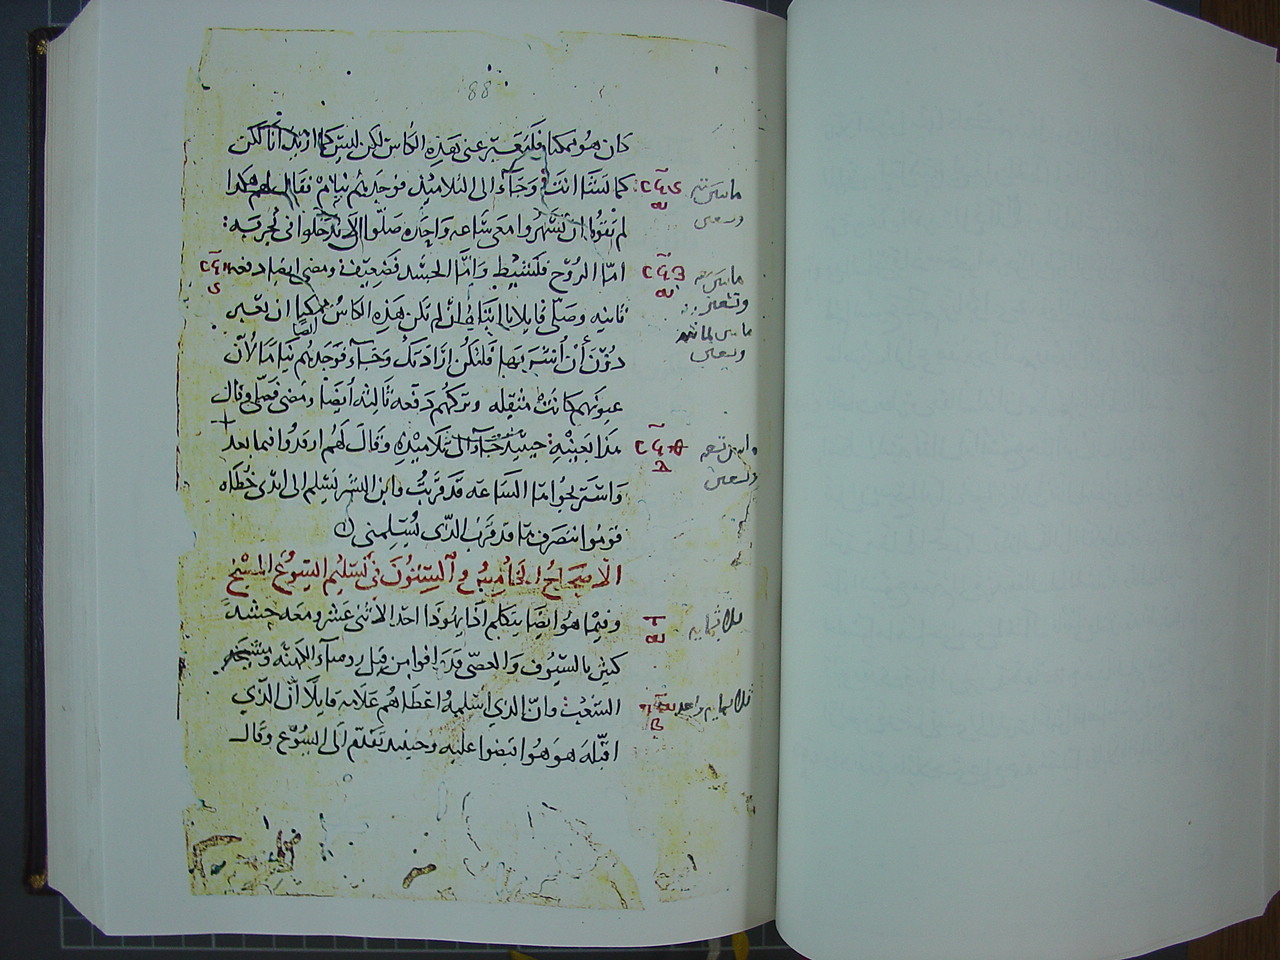 88
كان هو ممكنا فلتعبر عني هذه الكاس لكن ليس كما اريد انا لكن
كما تشا انت وجآء الى التلاميذ فوجدهم نيام فقال لهم هكذا
لم تقووا ان تسهروا معي ساعه واحده صلّوا لا تدخلوا في تجربه:
امّا الروح فنشيط وامّا الجسد فضعيف ومضى ايضا دفعه
ثانيه وصلّى قايلا يا ابتاه ان لم تكن هذه الكاس ممكنا ان تعبر
دون أن أشربها فلتكن ارادتك وجآء فوجدهم نياما لأن
عيونهم كانت مثقله وتركهم دفعه ثالثه أيضا ومضى فصلى وقال
هذا بعينه حينيذ جآء الى تلاميذه وقال لهم ارقدوا فيما بعد
واستريحوا امّا الساعه قد قربت وابن البشر يُسلم الى ايدى خُطاه
قوموا ننصرف قد قرب الذي يُسلمني
الاصحاح الخامسه والستون في تسليم اليسوع المسيح
وفيما هو ايضا يتكلم اذا يهوذا احد الاثنى عشر ومعه حشد
كثير بالسيوف والعصى قد وافوا من قبل روسآء الكهنه ومشيخه
الشعب وان الذي اسلمه اعطاهم علامه قايلا أن الذي
اقبّله هو هو اقبضوا عليه وحينيذ تقدّم الى اليسوع وقال